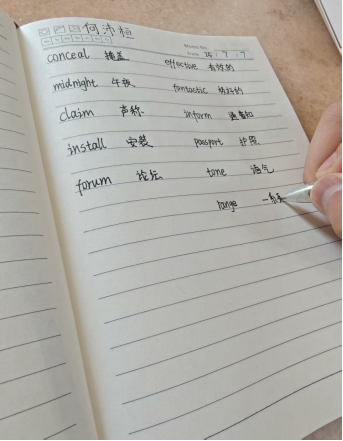 何沛桓
Date 26 . 7 . 7
conceal 掩盖 effective 有效的
midnight 午夜 fantactic 极好的
claim 声称 inform 通知
install 安装 passport 护照
forum 论坛 tone 语气
range 一系